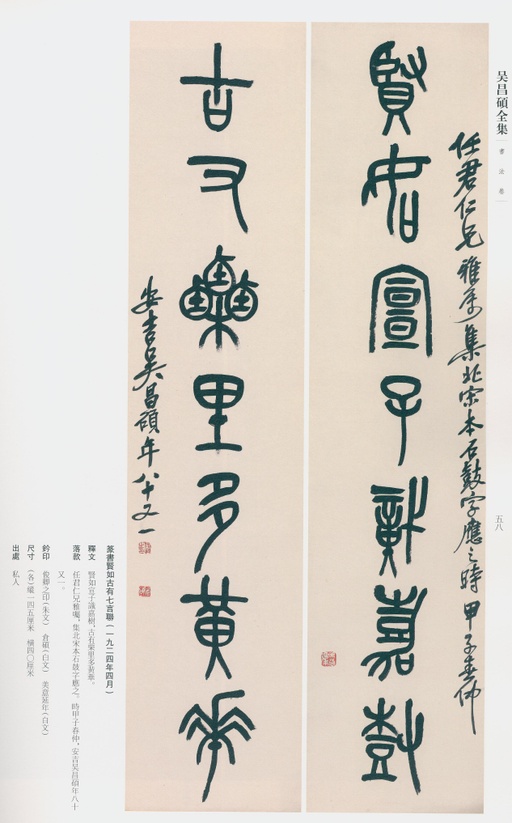 吴昌碩全集 書法卷
五八
任君仁兄雅屬集北宋本石鼓字應之時甲子春仲
賢如宣子識嘉樹
古又栗里多黄華
安吉吴昌碩年八十又一
篆書賢如古有七言聯（一九二四年四月）
釋文 賢如宣子識嘉樹，古有栗里多黃華。
落款 任君仁兄雅囑，集北宋本石鼓字應之。時甲子春仲，安吉吳昌碩年八十
又一。
鈐印 俊卿之印（朱文） 倉碩（白文） 美意延年（白文）
尺寸 （各）縱一四五厘米 橫四〇厘米
出處 私人